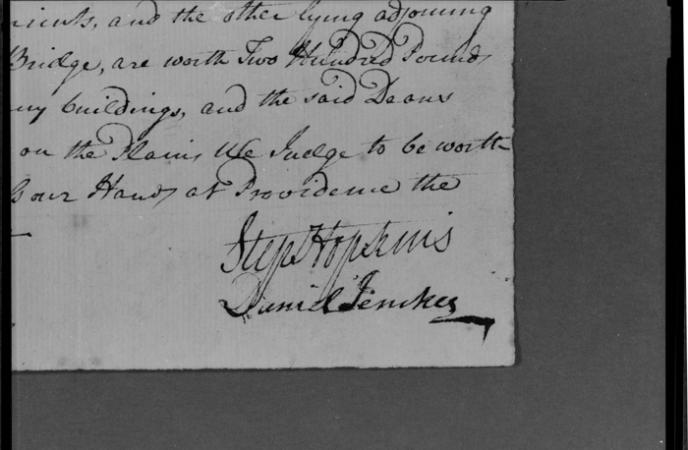 and the other lying adjoining
Bridge, are worth Two Hundred Pounds
ny buildings, and the said Deans
on the Plain, We Judge to be worth
our Hands at Providence the
Step Hopkins
Daniel Jenckes